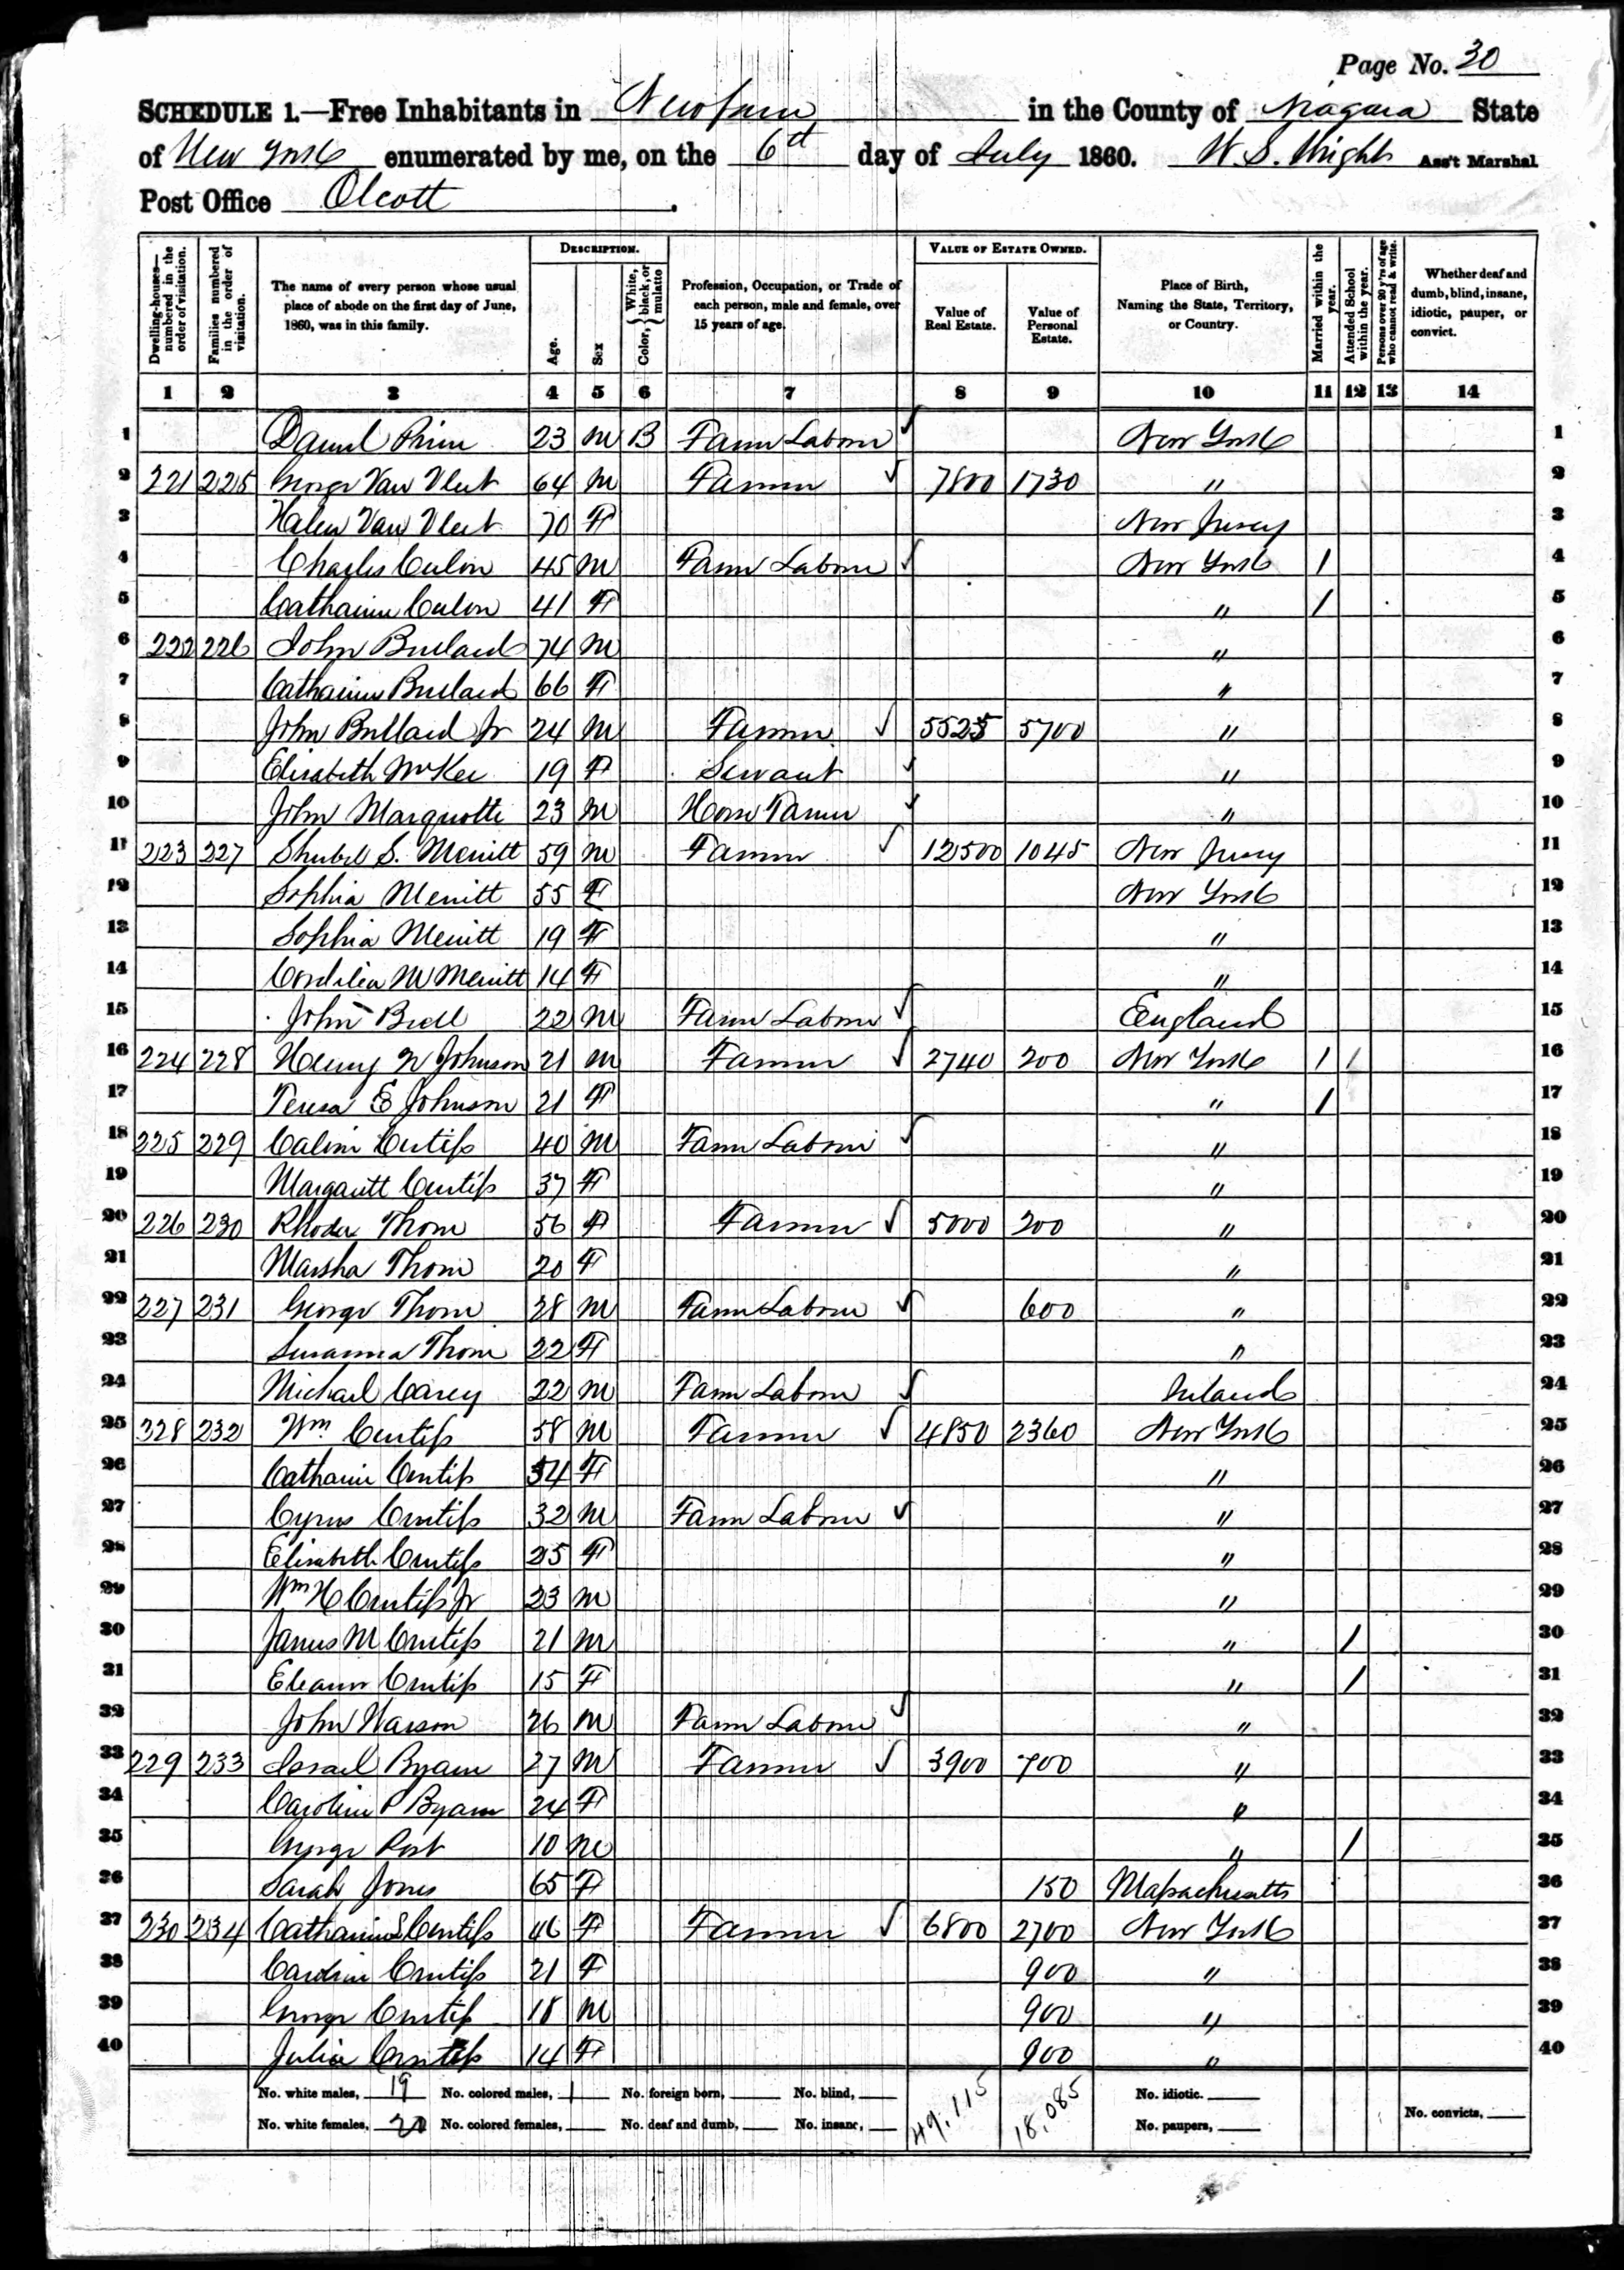 Page No. 30
SCHEDULE 1.—Free Inhabitants in Newfane in the County of Niagara State
of New York enumerated by me, on the 6th day of July 1860. W. S. Wright Ass't Marshal
Post Office Olcott.
Dwelling-houses—numbered in the order of visitation.
Families numbered in the order of visitation.
The name of every person whose usual place of abode on the first day of June, 1860, was in this family.
DESCRIPTION.
Age.
Sex
Color, {White, black, or mulatto
Profession, Occupation, or Trade of each person, male and female, over 15 years of age.
VALUE OF ESTATE OWNED.
Value of Real Estate.
Value of Personal Estate.
Place of Birth, Naming the State, Territory, or Country.
Married within the year.
Attended School within the year.
Persons over 20 y'rs of age who cannot read & write.
Whether deaf and dumb, blind, insane, idiotic, pauper, or convict.
1 2 3 4 5 6 7 8 9 10 11 12 13 14
1 Daniel 23 M B Farm Laborer New York 1
2 221 225 George Van Vleet 64 M Farmer 7800 1730 " 2
3 Helen Van Vleet 70 F New Jersey 3
4 Charles 45 M Farm Laborer New York 1 4
5 Catharine 41 F " 1 5
6 222 226 John Bullard 74 M " 6
7 Catharine Bullard 66 F " 7
8 John Bullard Jr 24 M Farmer 5525 5700 " 8
9 Elisabeth McKee 19 F Servant " 9
10 John Marquotte 23 M Horse " 10
11 223 227 Shubel S. Merritt 59 M Farmer 12500 1045 New Jersey 11
12 Sophia Merritt 55 F New York 12
13 Sophia Merritt 19 F " 13
14 Cordelia M Merritt 14 F " 14
15 John 22 M Farm Laborer England 15
16 224 228 Henry Johnson 21 M Farmer 2740 200 New York 1 1 16
17 Teresa E Johnson 21 F " 1 17
18 225 229 Calvin Curtiss 40 M Farm Laborer " 18
19 Margarett Curtiss 37 F " 19
20 226 230 Rhoda Thorn 56 F Farmer 5000 200 " 20
21 Marsha Thorn 20 F " 21
22 227 231 George Thorn 28 M Farm Laborer 600 " 22
23 Susanna Thorn 22 F " 23
24 Michael Carey 22 M Farm Laborer Ireland 24
25 328 232 Wm Curtiss 58 M Farmer 4850 2360 New York 25
26 Catharine Curtiss 54 F " 26
27 Cyrus Curtiss 32 M Farm Laborer " 27
28 Elisabeth Curtiss 25 F " 28
29 Wm H Curtiss Jr 23 M " 29
30 James M Curtiss 21 M " 1 30
31 Eleanor Curtiss 15 F " 1 31
32 John Warson 26 M Farm Laborer " 32
33 229 233 Israel Byam 27 M Farmer 3900 700 " 33
34 Caroline P Byam 24 F " 34
35 George Post 10 M " 1 35
36 Sarah Jones 65 F 150 Massachusetts 36
37 230 234 Catharine S Curtiss 46 F Farmer 6800 2700 New York 37
38 Caroline Curtiss 21 F 900 " 38
39 George Curtiss 18 M 900 " 39
40 Julia Curtiss 14 F 900 " 40
No. white males, 19 No. colored males, 1 No. foreign born, No. blind, 49,115 18,085 No. idiotic.
No. white females, 20 No. colored females, No. deaf and dumb, No. insane, No. paupers, No. convicts,